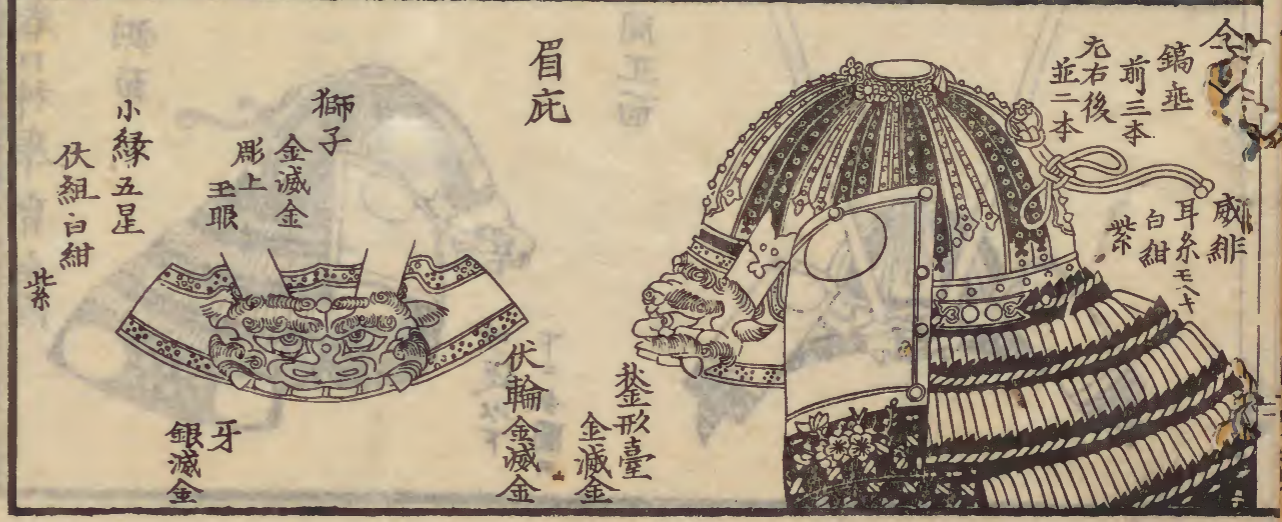 仝
鎬垂
前三本
左右後
並二本
威緋
耳糸モヘキ
白紺
紫
眉庇
鍬形臺
金滅金
伏輪金滅金
獅子
金滅金
彫上
玉眼
小縁五星
伏組白紺
紫
牙
銀滅金